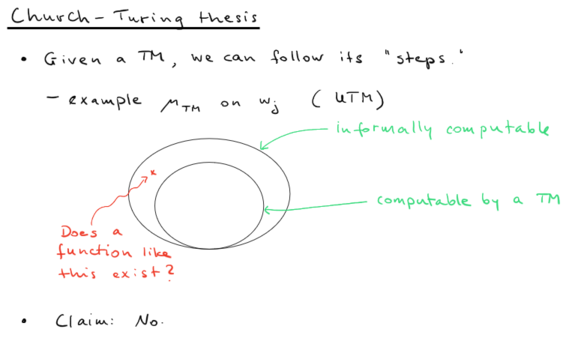 Church-Turing thesis
• Given a TM, we can follow its "steps."
- example μTM on wj (UTM)
informally computable
*
computable by a TM
Does a
function like
this exist?
• Claim: No.